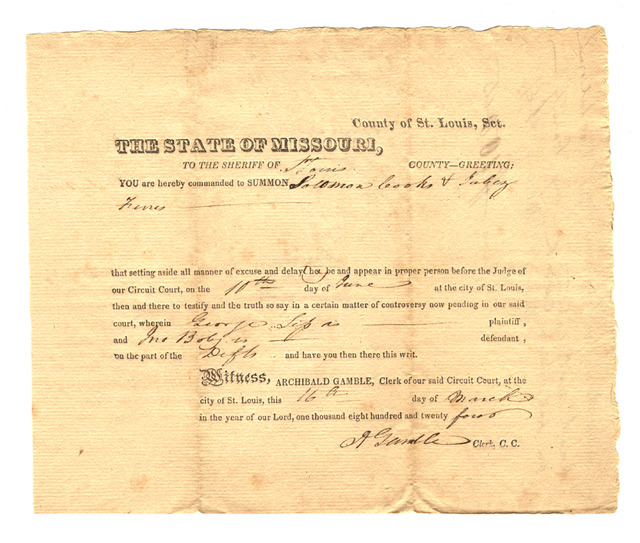 County of St. Louis, Sct.
THE STATE OF MISSOURI,
TO THE SHERIFF OF St Louis COUNTY—GREETING:
YOU are hereby commanded to SUMMON Solomon Cooks & Jabez
Ferris
that setting aside all manner of excuse and delay (he) be and appear in proper person before the Judge of
our Circuit Court, on the 10th day of June at the city of St. Louis,
then and there to testify and the truth so say in a certain matter of controversy now pending in our said
court, wherein George plaintiff,
and Jno defendant,
on the part of the Deft and have you then there this writ.
Witness, ARCHIBALD GAMBLE, Clerk of our said Circuit Court, at the
city of St. Louis, this 16th day of March
in the year of our Lord, one thousand eight hundred and twenty four
A Gamble Clerk, C. C.